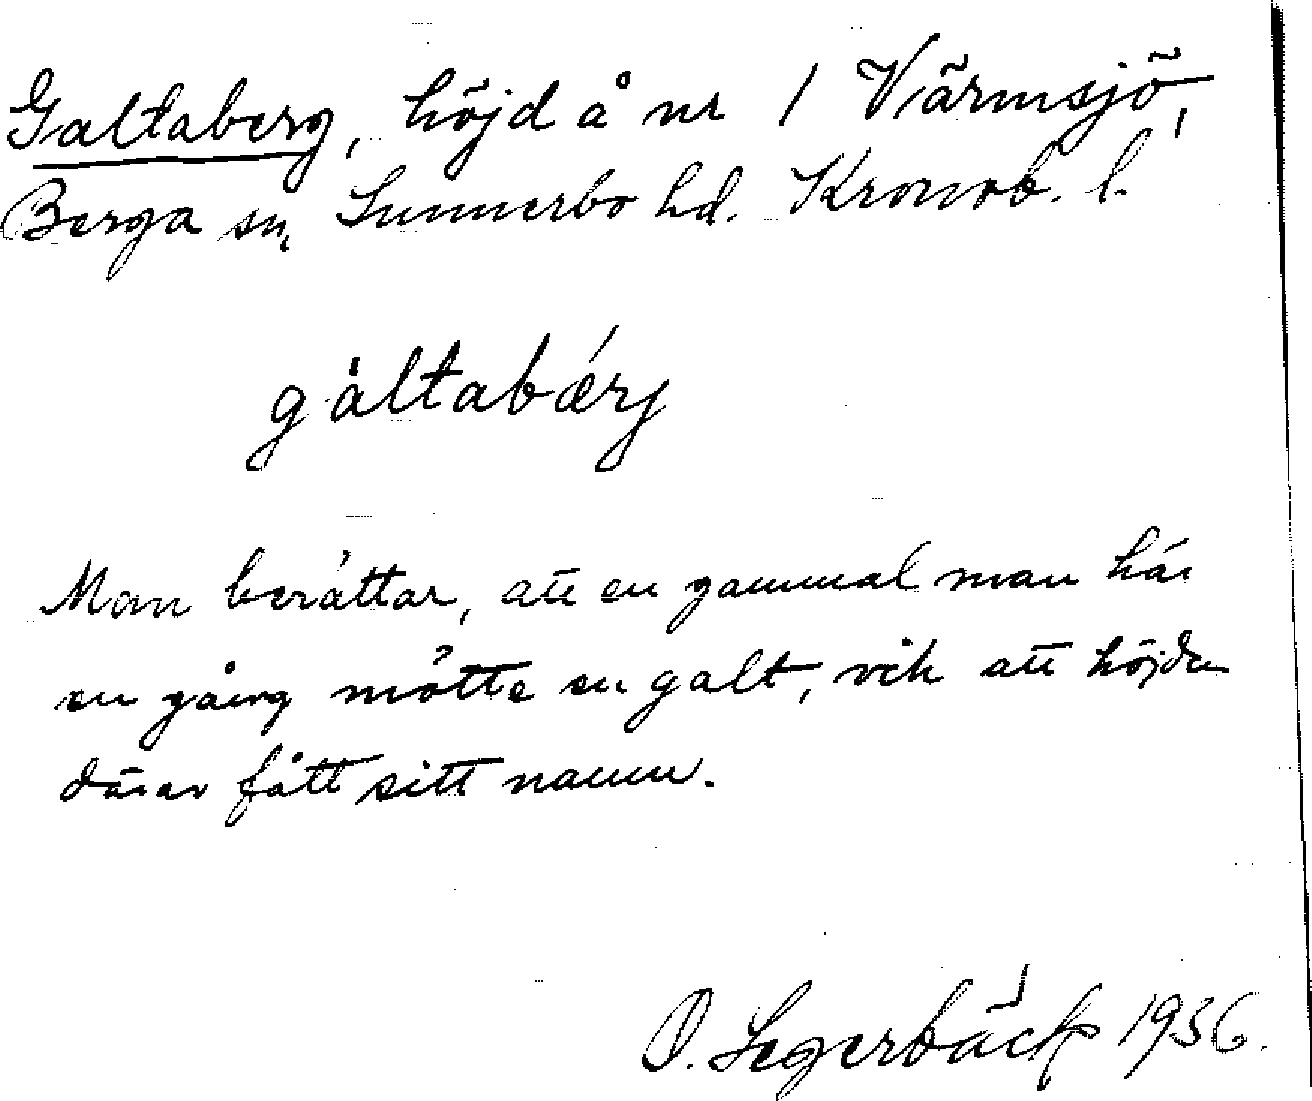 Galtaberg, höjd å nr 1 Värmsjö,
Berga sn, Sunnerbo hd. Kronob. l.
gàltabǽrj
Man berättar, att en gammal man här
en gång mötte en galt, och att höjden
därav fått sitt namn.
O. Segerbäck 1936.